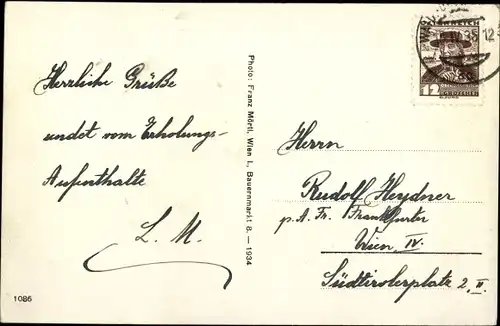 Herrliche Grüße
sendet vom Erholungs-
Aufenthalte
L. M.
1086
Photo: Franz Mörtl, Wien I., Bauernmarkt 8. — 1934
12
GROSCHEN
Herrn
Rudolf Heydner
p. A. Fr. Frankfurter
Wien IV.
Südtirolerplatz 2, II.